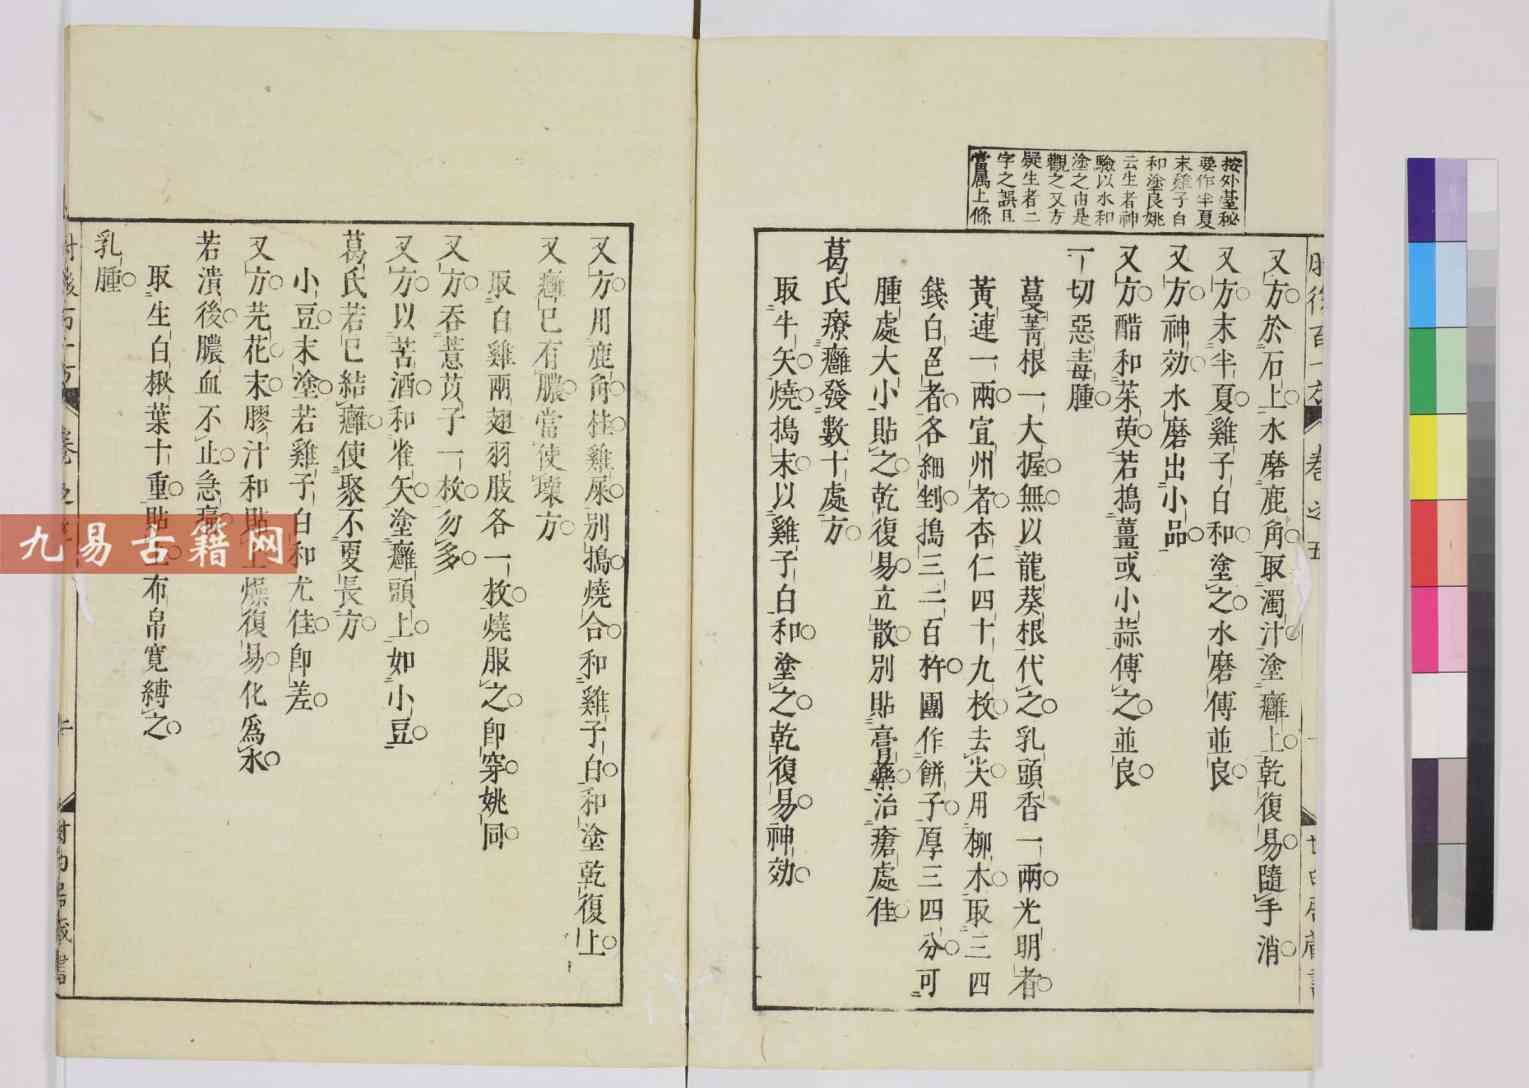 按外臺秘
要作半夏
末雞子白
和塗良姚
云生者神
驗以水和
塗之由是
觀之又方
疑生者二
字之誤且
當属上條
又方於石上水磨鹿角取濁汁塗癰上乾復易隨手消
又方末半夏雞子白和塗之水磨傅並良
又方神効水磨出小品
又方醋和茱萸若搗薑或小蒜傅之並良
一切惡毒腫
蔓菁根一大握無以龍葵根代之乳頭香一兩光明者
黃連一兩宜州者杏仁四十九枚去尖用柳木取三四
錢白色者各細剉搗三二百杵團作餅子厚三四分可
腫處大小貼之乾復易立散別貼膏藥治瘡處佳
葛氏療癰發數十處方
取牛矢燒搗末以雞子白和塗之乾復易神効
又方用鹿角桂雞屎別搗燒合和雞子白和塗乾復上
又癰已有膿當使壞方
取白雞兩翅羽肢各一枚燒服之即穿姚同
又方吞薏苡子一枚勿多
又方以苦酒和雀矢塗癰頭上如小豆
葛氏若已結癰使聚不更長方
小豆末塗若雞子白和尤佳即差
又方芫花末膠汁和貼上燥復易化爲水
若潰後膿血不止急
取生白楸葉十重貼上布帛寬縛之
乳腫
九易古籍网